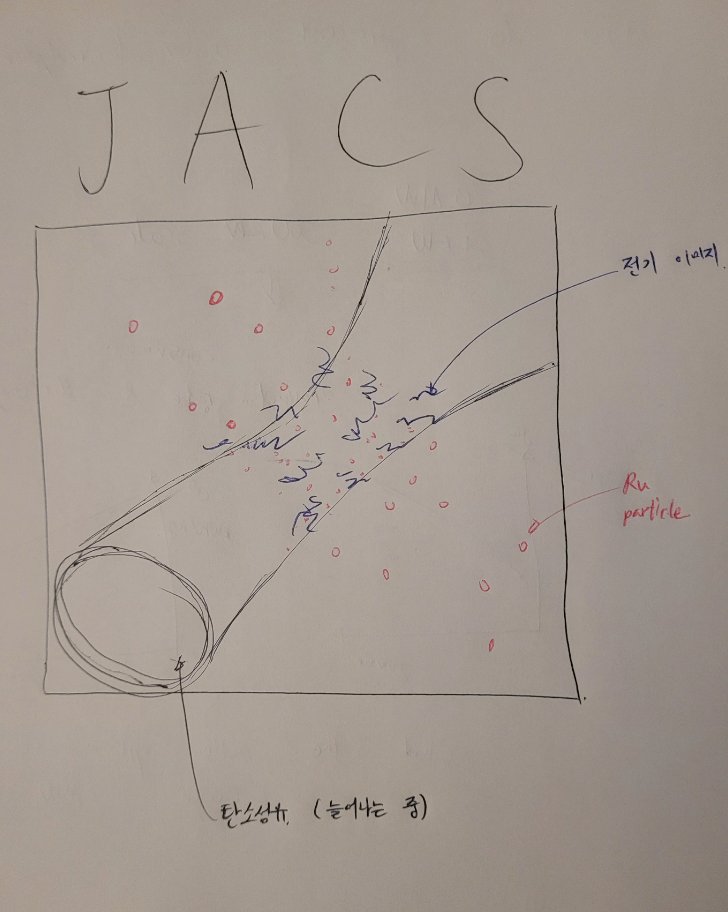 JACS
전기 이미지.
Ru
particle
탄소섬유. (늘어나는 중)